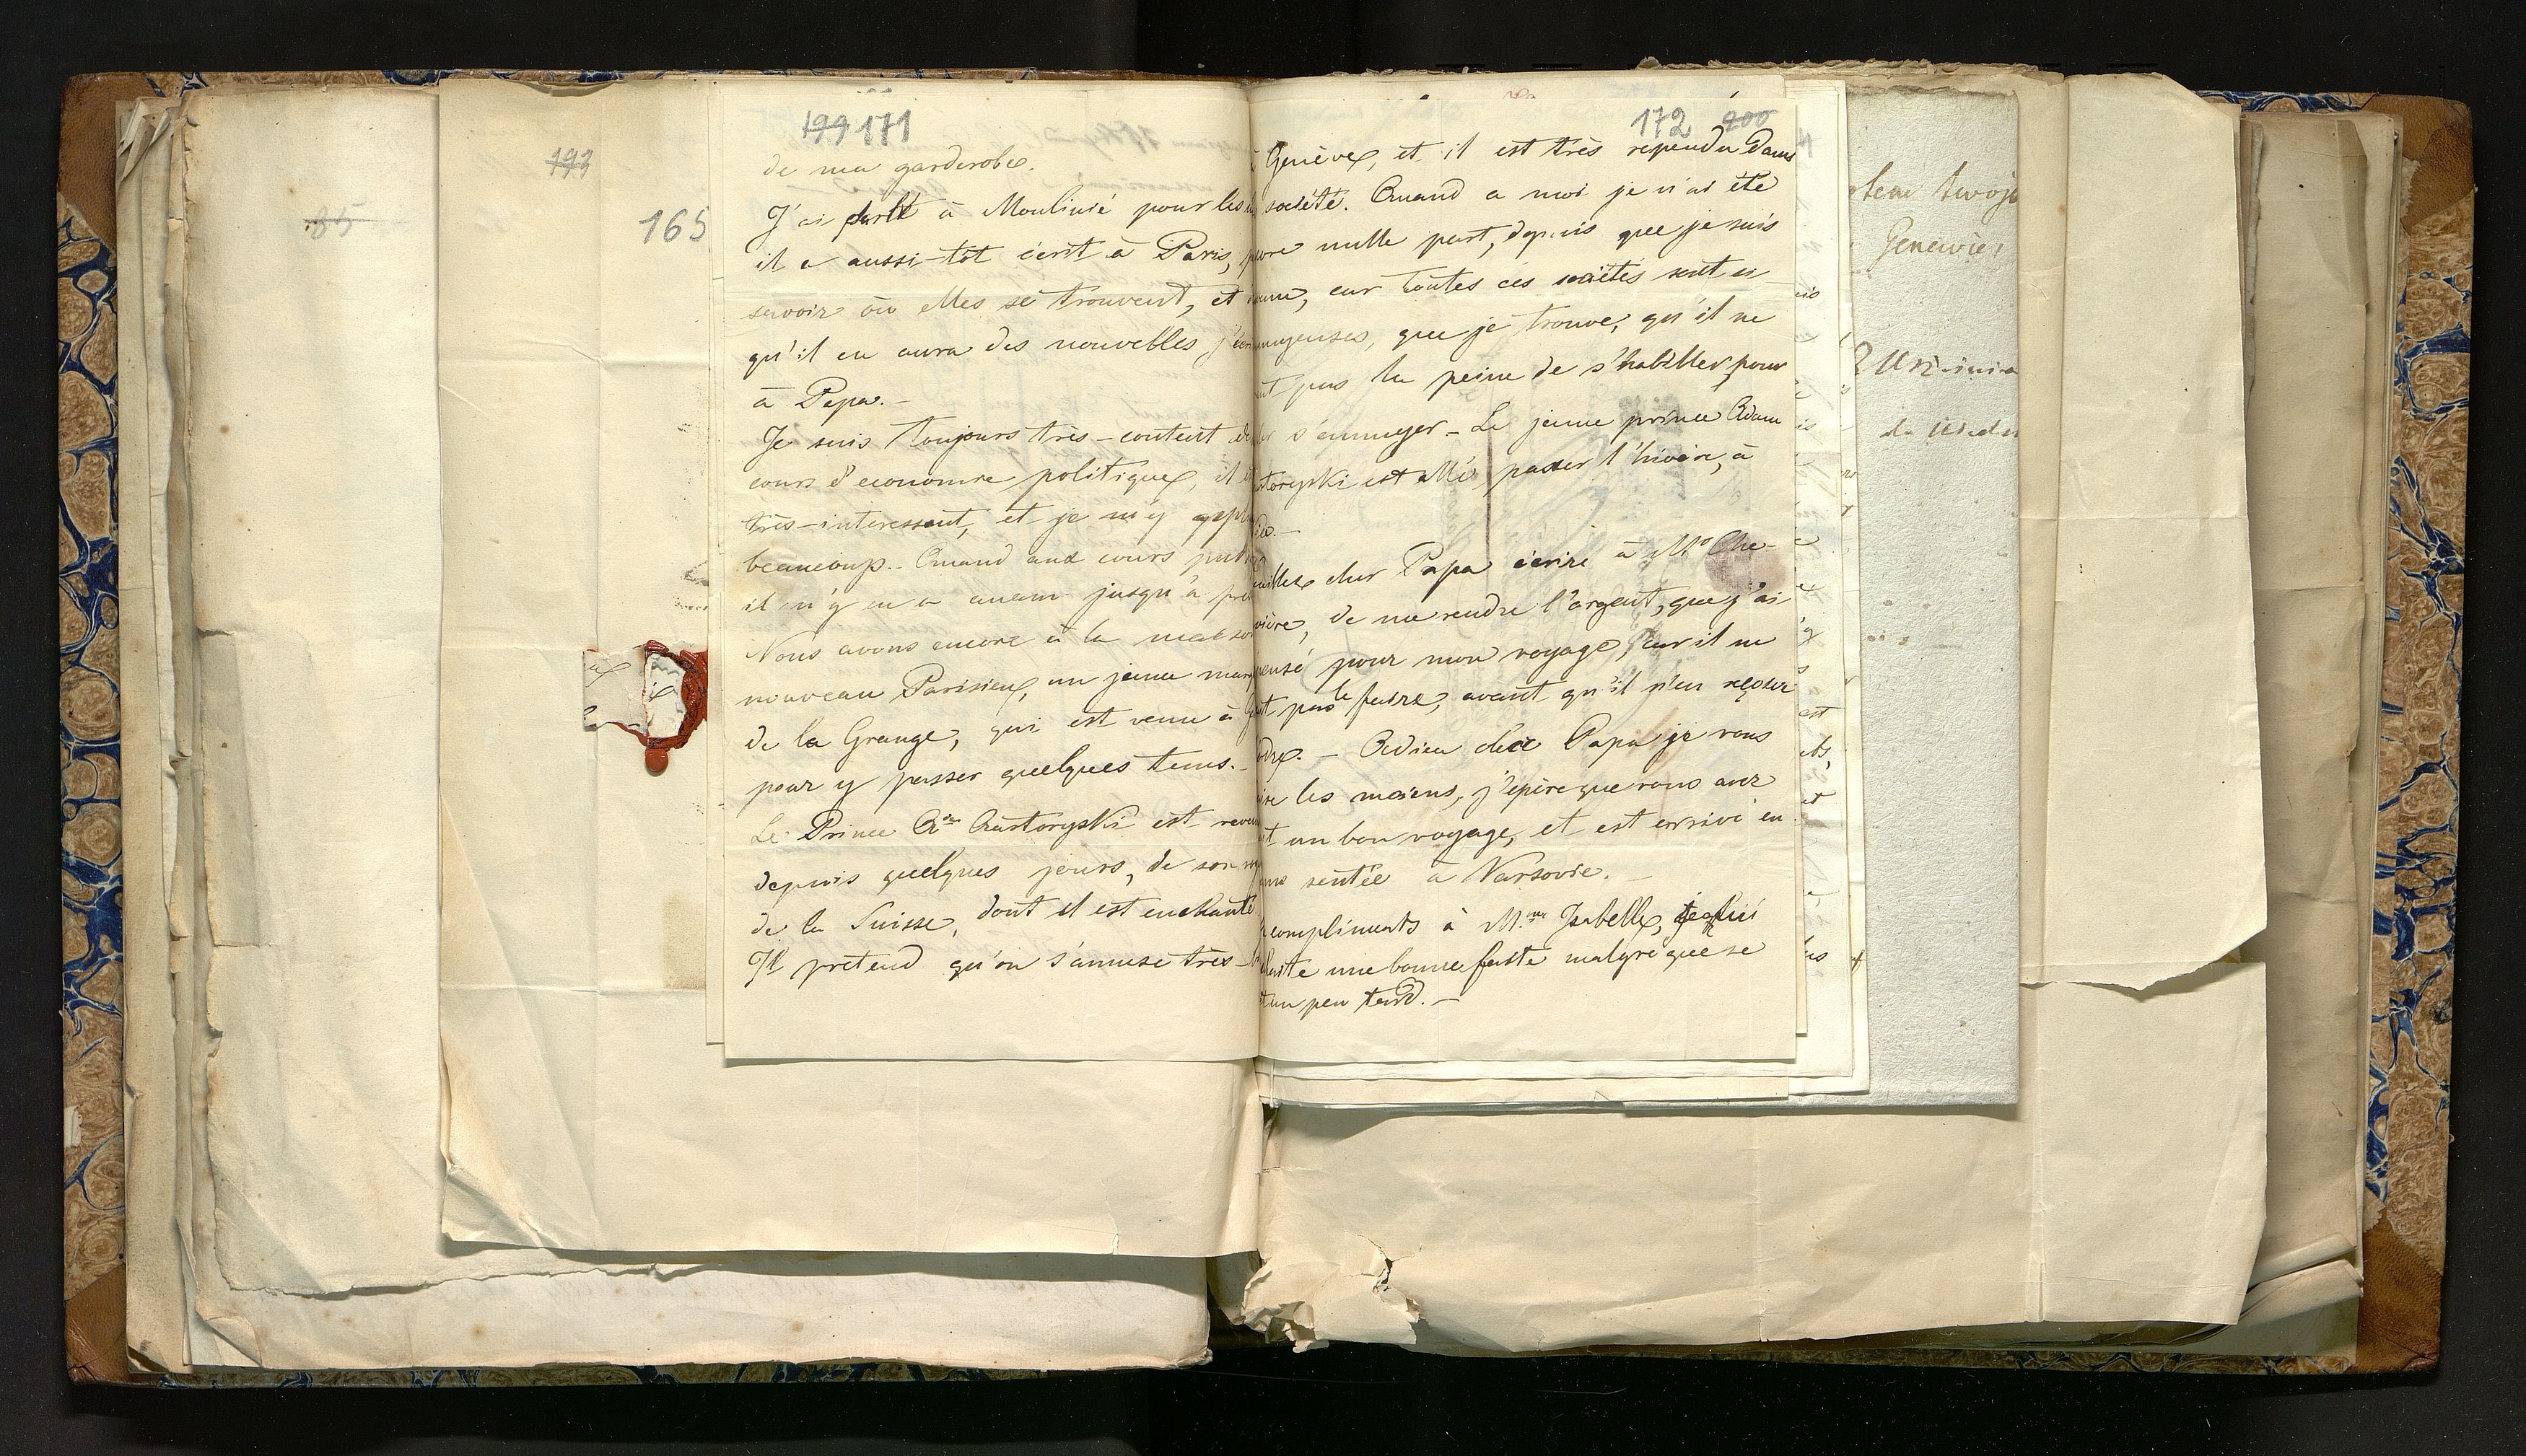 199 171
193
85
165
de ma garderobe.
J'ai parlé à Moulinié pour les
il a aussi-tôt écrit à Paris,
savoir où elles se trouvent, et
qu'il en aura des nouvelles j'écri
à Papa.-
Je suis toujours très-content de
cours d'economie politique, il
très-interessant, et je m'y
beaucoup.- Quand aux cours pub
il n'y en a aucun jusqu'à pré
Nous avons encore à la maison
nouveau Parisien, un jeune marq
de la Grange, qui est venu à G
pour y passer quelques tems.-
Le Prince Czartoryski est revenu
depuis quelques jours, de son
de la Suisse, dont il est enchanté
Il pretend qu'on s'amuse très-
172 200
Genève, et il est très rependu dans
société. Quand a moi je n'ai été
nulle part, depuis que je suis
car toutes ces sociétés sont en
nuyeuses, que je trouve, qu'il ne
ut pas la peine de s'habiller pour
s'ennuyer - Le jeune prince Adam
rtoryski est allé passer l'hivère, à
euillez cher Papa écrire à Mr Che-
vière, de me rendre l'argent, que j'ai
pensé pour mon voyage, car il ne
ut pas le faire, avant qu'il n'en reçoive
ordre. - Adieu cher Papa je vous
ise les moiens, j'épère que vous avez
it un bon voyage, et est arrivé en
nne sentée à Varsovie. -
compliments à M.me Isabelle, je lui
uhaite une bonne feste malgré que se
it un peu tard. -
twoje
Genewie